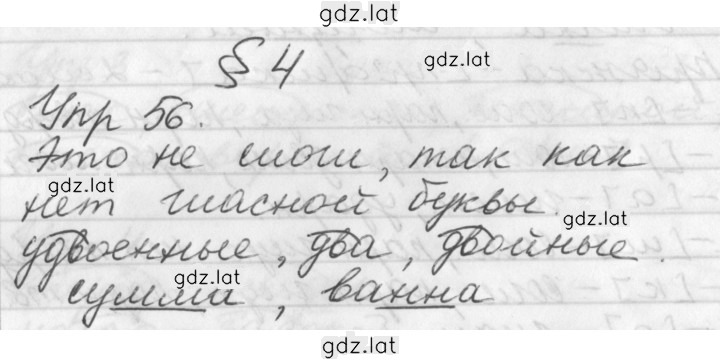 gdz.lat
§ 4
gdz.lat
Упр 56.
Это не слоги, так как
gdz.lat
нет гласной буквы.
gdz.lat
удвоенные, два, двойные.
gdz.lat
сумма, ванна
gdz.lat